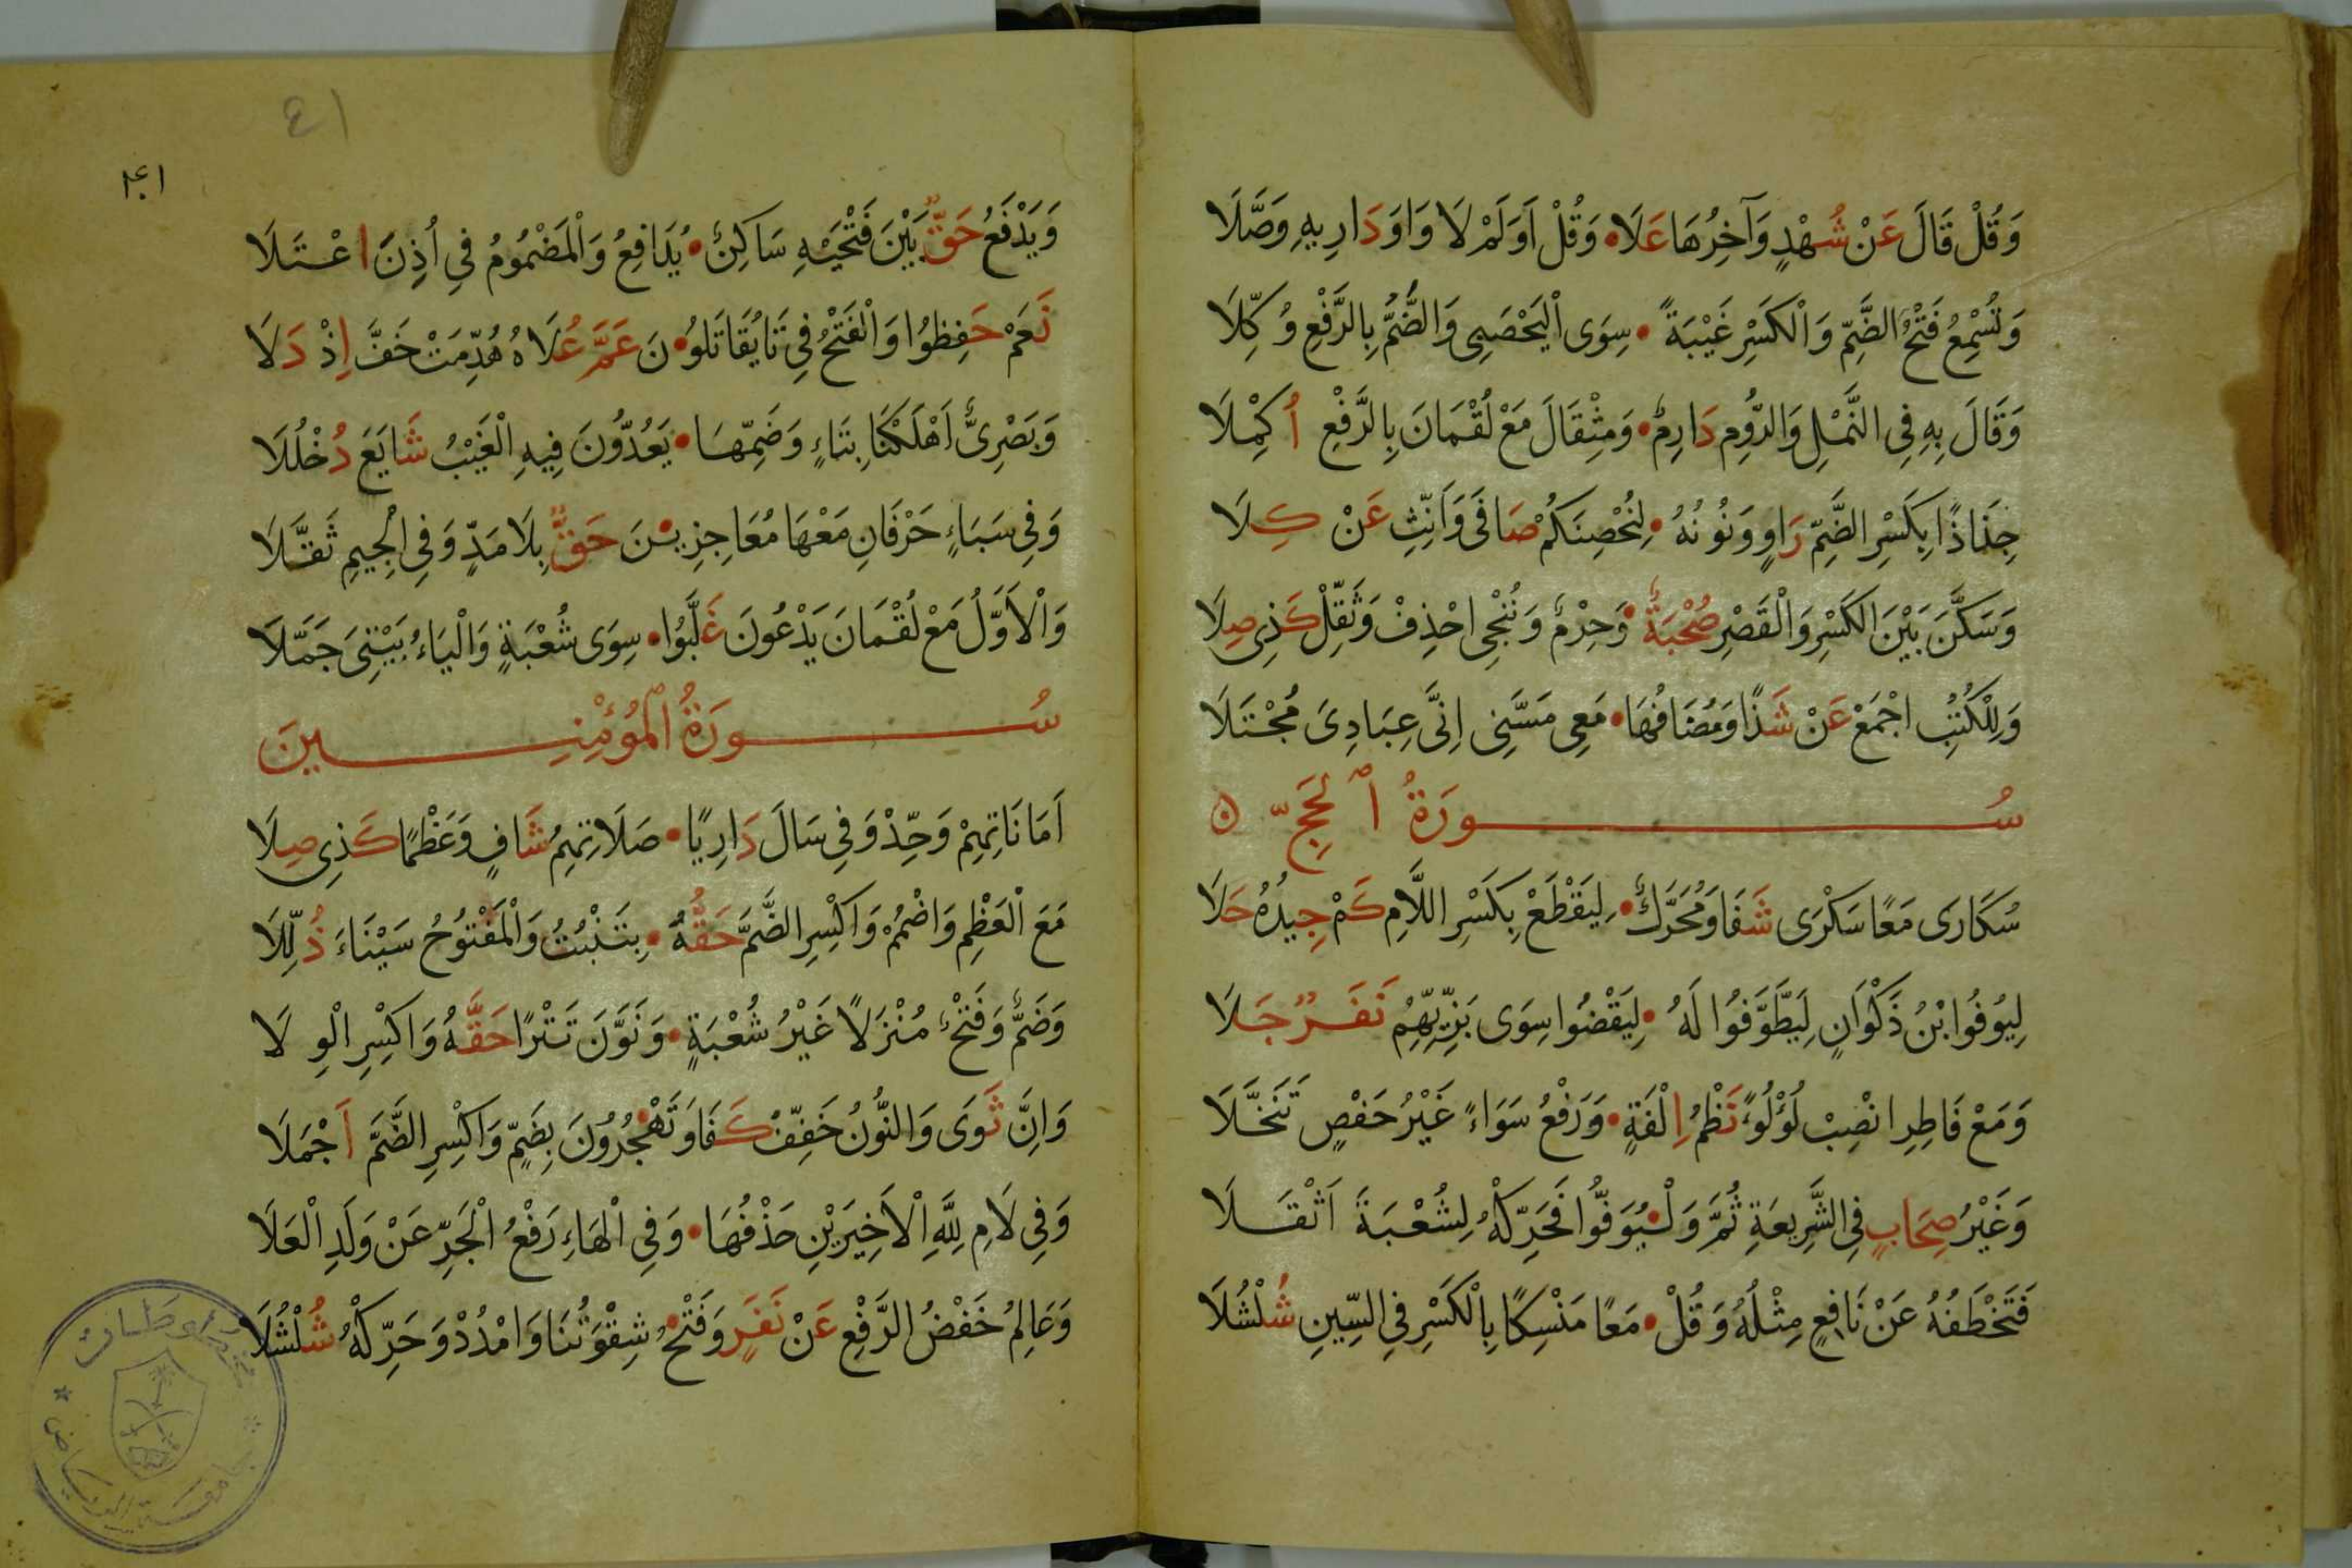 وَقُلْ قَالَ عَنْ شُهْدٍ وَآخِرُهَا عَلَا • وَقُلْ اَوَلَمْ لَا وَاوَ دَارِيهِ وَصَّلَا
وَتُسْمِعُ فَتْحُ الضَّمِّ وَالْكَسْرِ غَيْبَةً • سِوَى الْيَحْصَبِى وَالضَّمُّ بِالرَّفْعِ وُكِّلَا
وَقَالَ بِهِ فِى النَّمْلِ وَالرُّومِ دَارِمٌ • وَمِثْقَالَ مَعْ لُقْمَانَ بِالرَّفْعِ اُكْمِلَا
جِذَاذًا بِكَسْرِ الضَّمِّ رَاوٍ وَنُونُهُ • لِنُحْصِنَكُمْ صَافَى وَاَنِّثِ عَنْ كِلَا
وَسَكَّنَ بَيْنَ الكَسْرِ وَالْقَصْرِ صُحْبَةٌ • وَحِرْمٌ وَنُنْجِى احْذِفْ وَثَقِّلْ كَذِى صِلَا
وَلِلْكُتُبِ اجْمَعْ عَنْ شَذًا وَمُضَافُهَا • مَعِى مَسَّنِى اِنِّى عِبَادِىَ مُجْتَلَا
سُورَةُ ٱلْحَجِّ ۝
سُكَارَى مَعًا سَكْرَى شَفَا وَمُحَرَّكٌ • لِيَقْطَعْ بِكَسْرِ اللَّامِ كَمْ جِيدُهُ حَلَا
لِيُوفُوا ابْنُ ذَكْوَانٍ لِيَطَّوَّفُوا لَهُ • لِيَقْضُوا سِوَى بَزِّيِّهِمْ نَفَرٌ جَلَا
وَمَعْ فَاطِرٍ انْصِبْ لُؤْلُؤًا نَظْمُ اِلْفَةٍ • وَرَفْعُ سَوَاءً غَيْرُ حَفْصٍ تَنَخَّلَا
وَغَيْرُ صِحَابٍ فِى الشَّرِيعَةِ ثُمَّ وَلْيُوَفُّوا فَحَرِّكْهُ لِشُعْبَةَ اَثْقَلَا
فَتَخْطَفُهُ عَنْ نَافِعٍ مِثْلُهُ وَقُلْ • مَعًا مَنْسِكًا بِالْكَسْرِ فِى السِّينِ شُلْشُلَا
٤١
١٤١
وَيَدْفَعُ حَقٌّ بَيْنَ فَتْحَيْهِ سَاكِنٌ • يُدَافِعُ وَالْمَضْمُومُ فِى اُذِنَ اعْتَلَا
نَعَمْ حَفِظُوا وَالْفَتْحُ فِى تَا يُقَاتَلُو • نَ عَمَّ عُلَاهُ هُدِّمَتْ خَفَّ اِذْ دَلَا
وَبَصْرِىٌّ اَهْلَكْنَا بِتَاءٍ وَضَمِّهَا • يَعُدُّونَ فِيهِ الْغَيْبُ شَايَعَ دُخْلُلَا
وَفِى سَبَاءٍ حَرْفَانِ مَعْهَا مُعَاجِزِيْنَ حَقٌّ بِلَا مَدٍّ وَفِى الْجِيمِ ثَقَّلَا
وَالْاَوَّلُ مَعْ لُقْمَانَ يَدْعُونَ غَلَّبُوا • سِوَى شُعْبَةٍ وَالْيَاءُ بَيْتِىَ جَمَّلَا
سُورَةُ ٱلْمُؤْمِنِينَ
اَمَانَاتِهِمْ وَحِّدْ وَفِى سَالَ دَارِيًا • صَلَاتِهِمُ شَافٍ وَعَظْمًا كَذِى صِلَا
مَعَ الْعَظْمِ وَاضْمُمْ وَاكْسِرِ الضَّمَّ حَقُّهُ • بِتَنْبُتُ وَالْمَفْتُوحُ سَيْنَاءَ ذُلِّلَا
وَضَمٌّ وَفَتْحٌ مُنْزَلًا غَيْرُ شُعْبَةٍ • وَنَوَّنَ تَتْرًا حَقُّهُ وَاكْسِرِ الْوِلَا
وَاِنَّ ثَوَى وَالنُّونُ خَفِّفْ كَفَا وَتَهْجُرُونَ بِضَمٍّ وَاكْسِرِ الضَّمَّ اَجْمَلَا
وَفِى لَامِ لِلّٰهِ الْاَخِيَرَيْنِ حَذْفُهَا • وَفِى الْهَاءِ رَفْعُ الْجَرِّ عَنْ وَلَدِ الْعَلَا
وَعَالِمُ خَفْضُ الرَّفْعِ عَنْ نَفَرٍ وَفَتْحُ شِقْوَتُنَا وَامْدُدْ وَحَرِّكْهُ شُلْشُلَا
جامعة الرياض